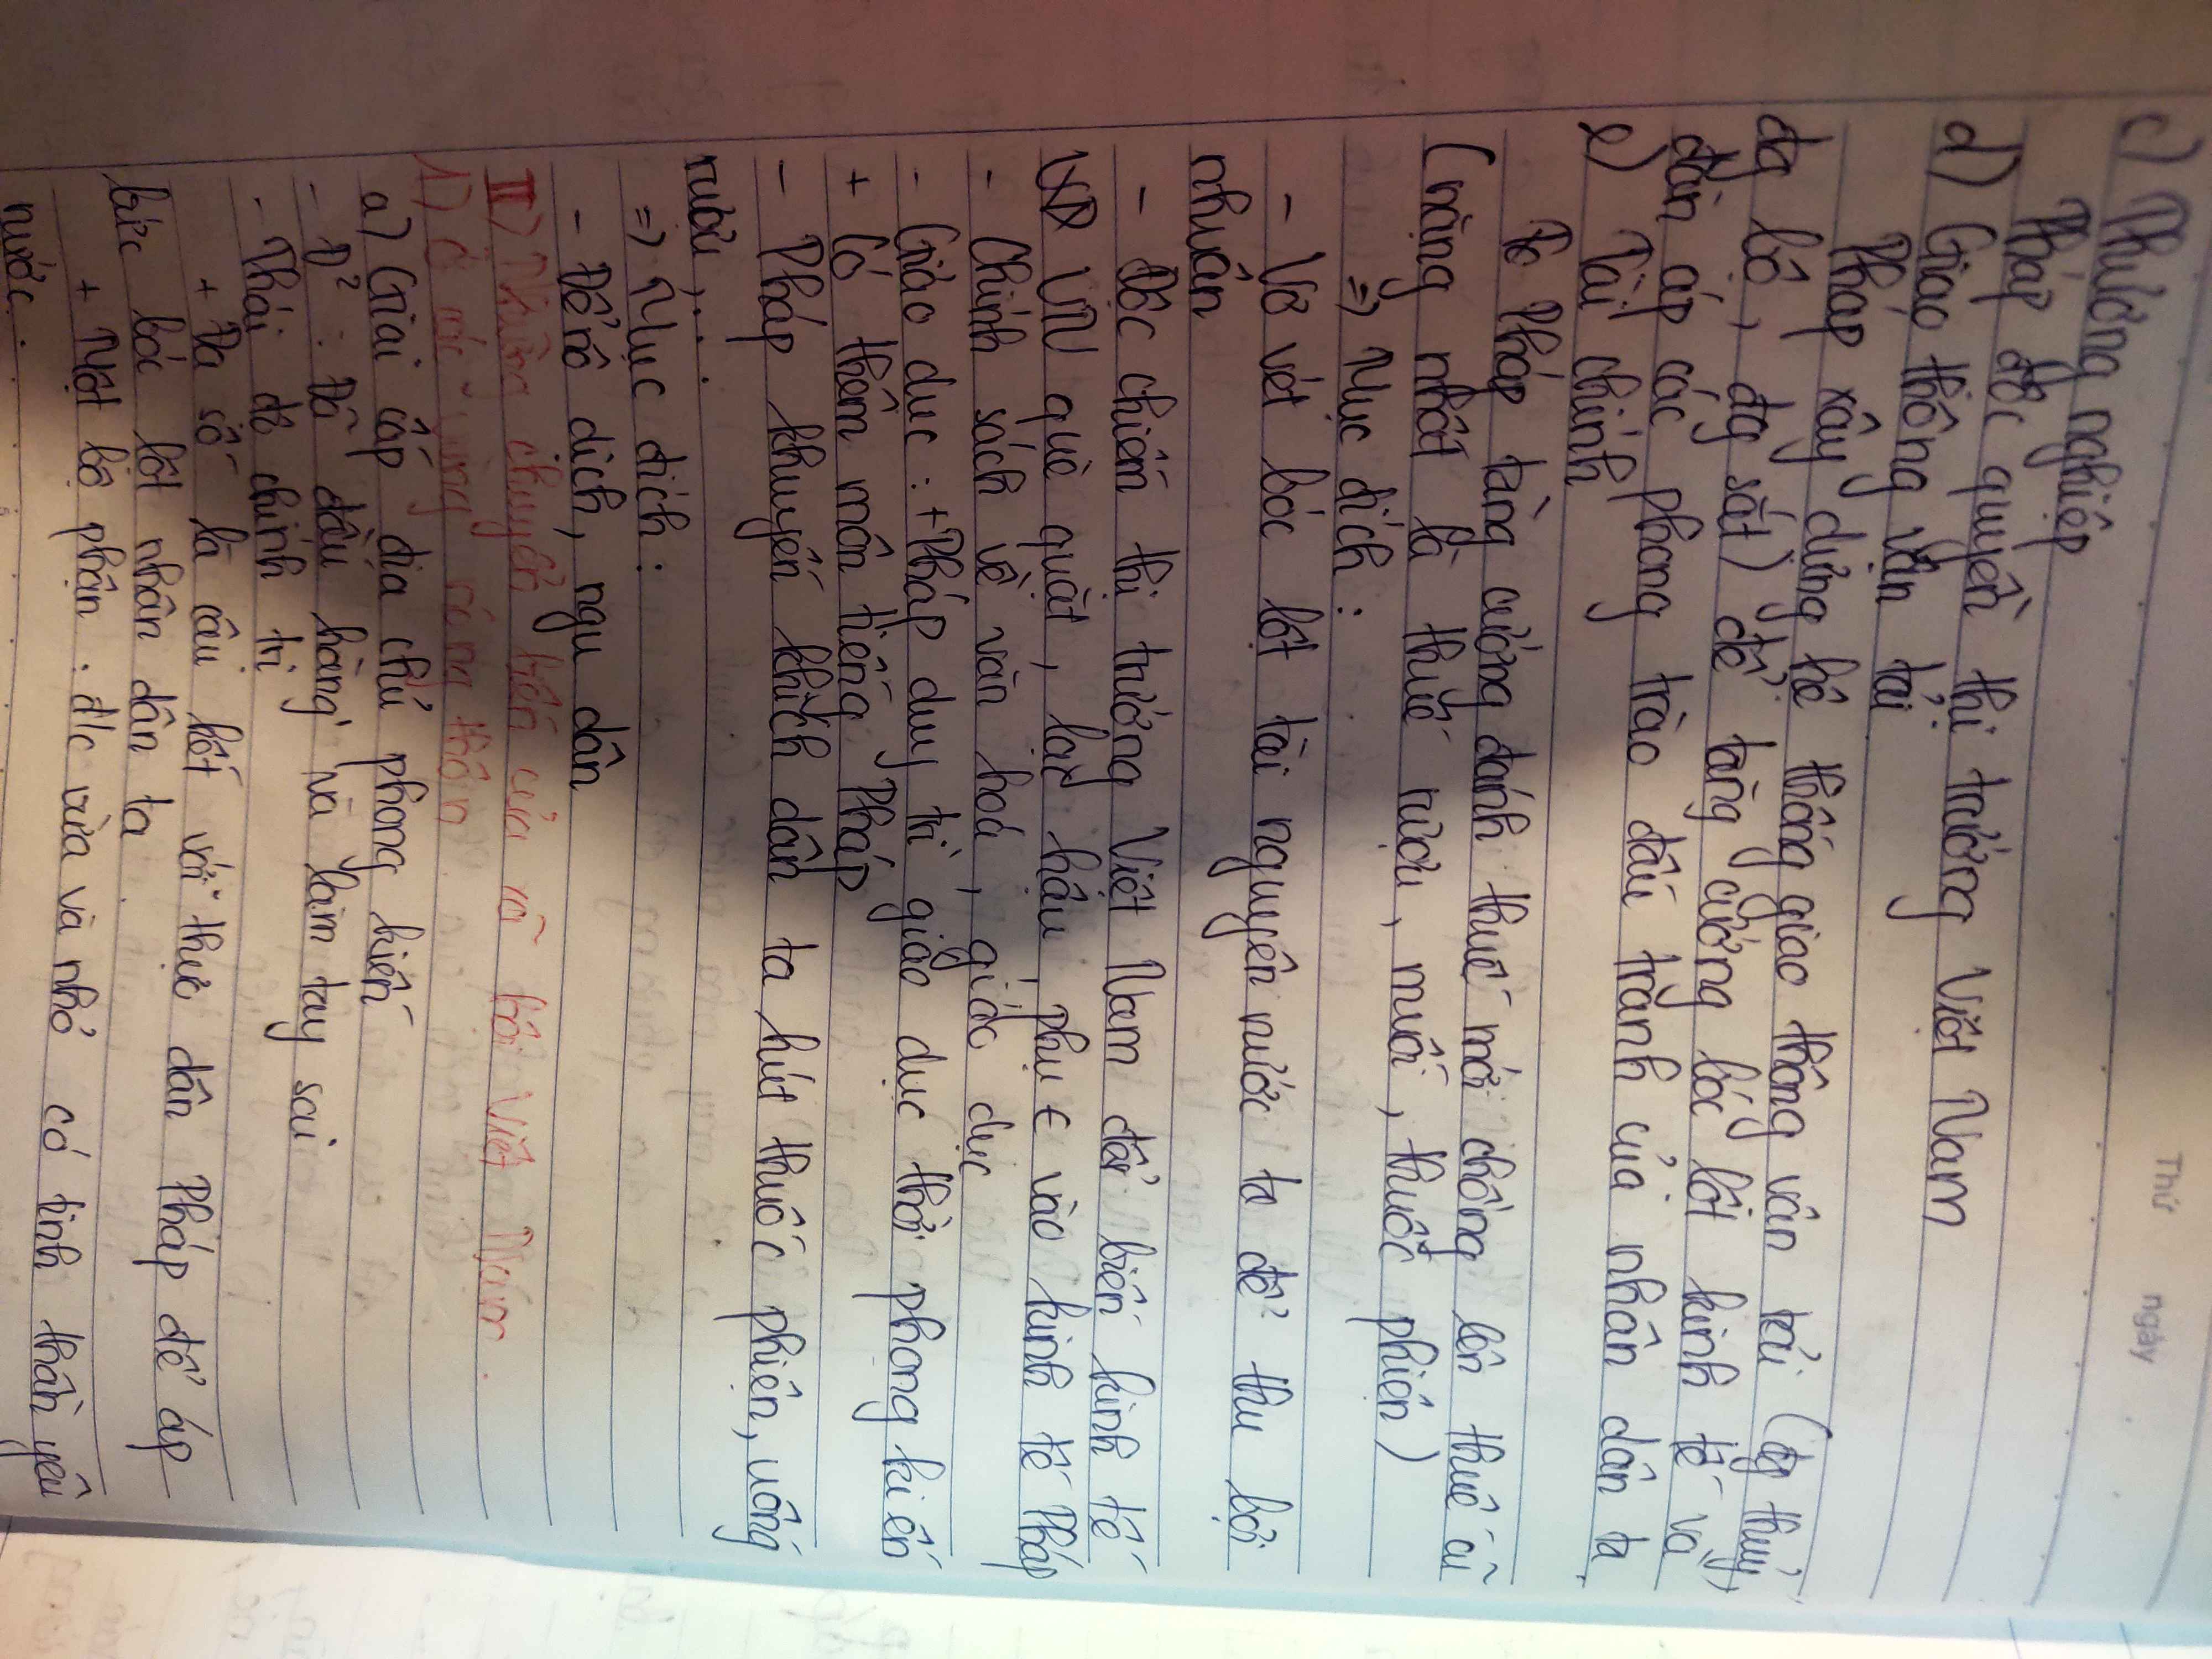 Thứ ngày
c) Thương nghiệp
Pháp độc quyền thị trường Việt Nam
d) Giao thông vận tải
Pháp xây dựng hệ thống giao thông vận tải (đg thuỷ,
đg bộ, đg sắt) để tăng cường bóc lột kinh tế và
đàn áp các phong trào đấu tranh của nhân dân ta
e) Tài chính
Pháp tăng cường đánh thuế mới chồng lên thuế cũ
(nặng nhất là thuế rượu, muối, thuốc phiện)
=> Mục đích:
- Vơ vét bóc lột tài nguyên nước ta để thu lợi
nhuận
- Độc chiếm thị trường Việt Nam để biến kinh tế
VN què quặt, lạc hậu, phụ € vào kinh tế Pháp
- Chính sách về văn hoá, giáo dục
- Giáo dục: + Pháp duy trì giáo dục thời phong kiến
+ Có thêm môn tiếng Pháp
- Pháp khuyến khích dân ta hút thuốc phiện, uống
rượu,...
=> Mục đích:
- Để nô dịch, ngu dân
II) Những chuyển biến của xã hội Việt Nam.
1) Ở các vùng nông thôn
a) Giai cấp địa chủ phong kiến
- Đ²: Đã đầu hàng và làm tay sai
- Thái độ chính trị
+ Đa số là câu kết với thực dân Pháp để áp
bức bóc lột nhân dân ta
+ Một bộ phận: đ/c vừa và nhỏ có tinh thần yêu
nước.